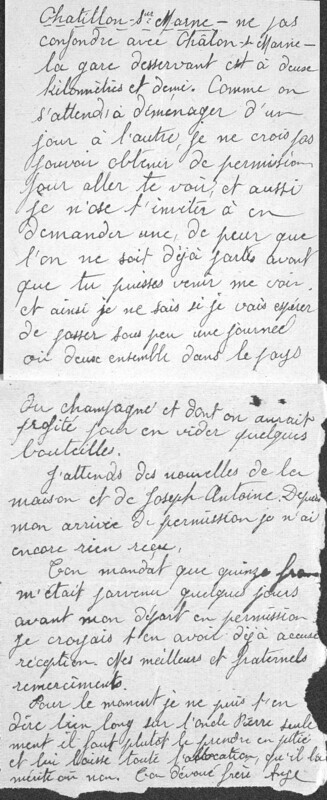 Chatillon-sur-Marne - ne pas
confondre avec Châlon-s-Marne -
la gare desservant est à deux
kilomètres et demi. Comme on
s'attend à déménager d'un
jour à l'autre, je ne crois pas
pouvoir obtenir de permission
pour aller te voir, et aussi
je n'ose t'inviter à en
demander une, de peur que
l'on ne soit déjà partis avant
que tu puisses venir me voir.
et ainsi je ne sais si je vais espérer
de passer sous peu une journée
ou deux ensemble dans le pays
du champagne et dont on aurait
profité pour en vider quelques
bouteilles.
J'attends des nouvelles de la
maison et de Joseph Antoine. Depuis
mon arrivée de permission je n'ai
encore rien reçu.
Ton mandat que quinze fran
m'était parvenu quelques jours
avant mon départ en permission
Je croyais t'en avoir déjà accusé
réception. Mes meilleurs et fraternels
remerciments.
Pour le moment je ne puis t'en
dire bien long sur l'oncle Pierre seule
ment il faut plutôt le prendre en pitié
et lui laisse toute l'allocation, qu'il la
mérite ou non. Ton dévoué frère Ange